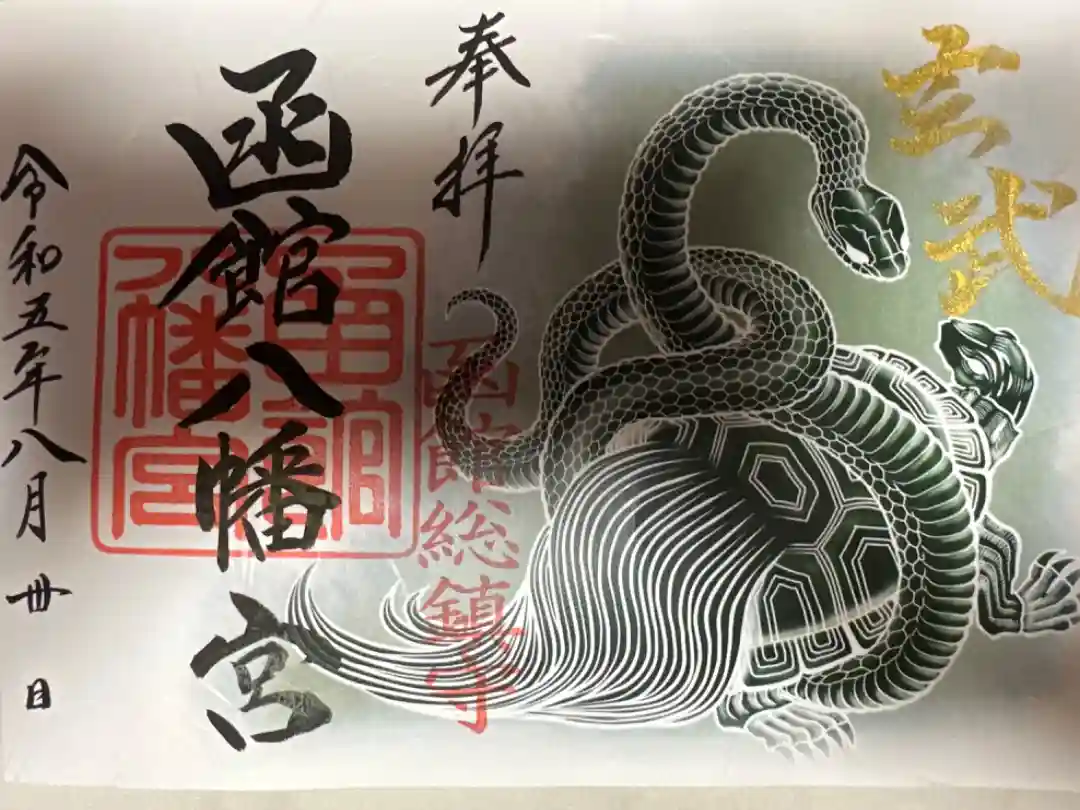 玄武
奉拝
函館総鎮守
函館八幡宮
函館
八幡宮
令和五年八月卅日